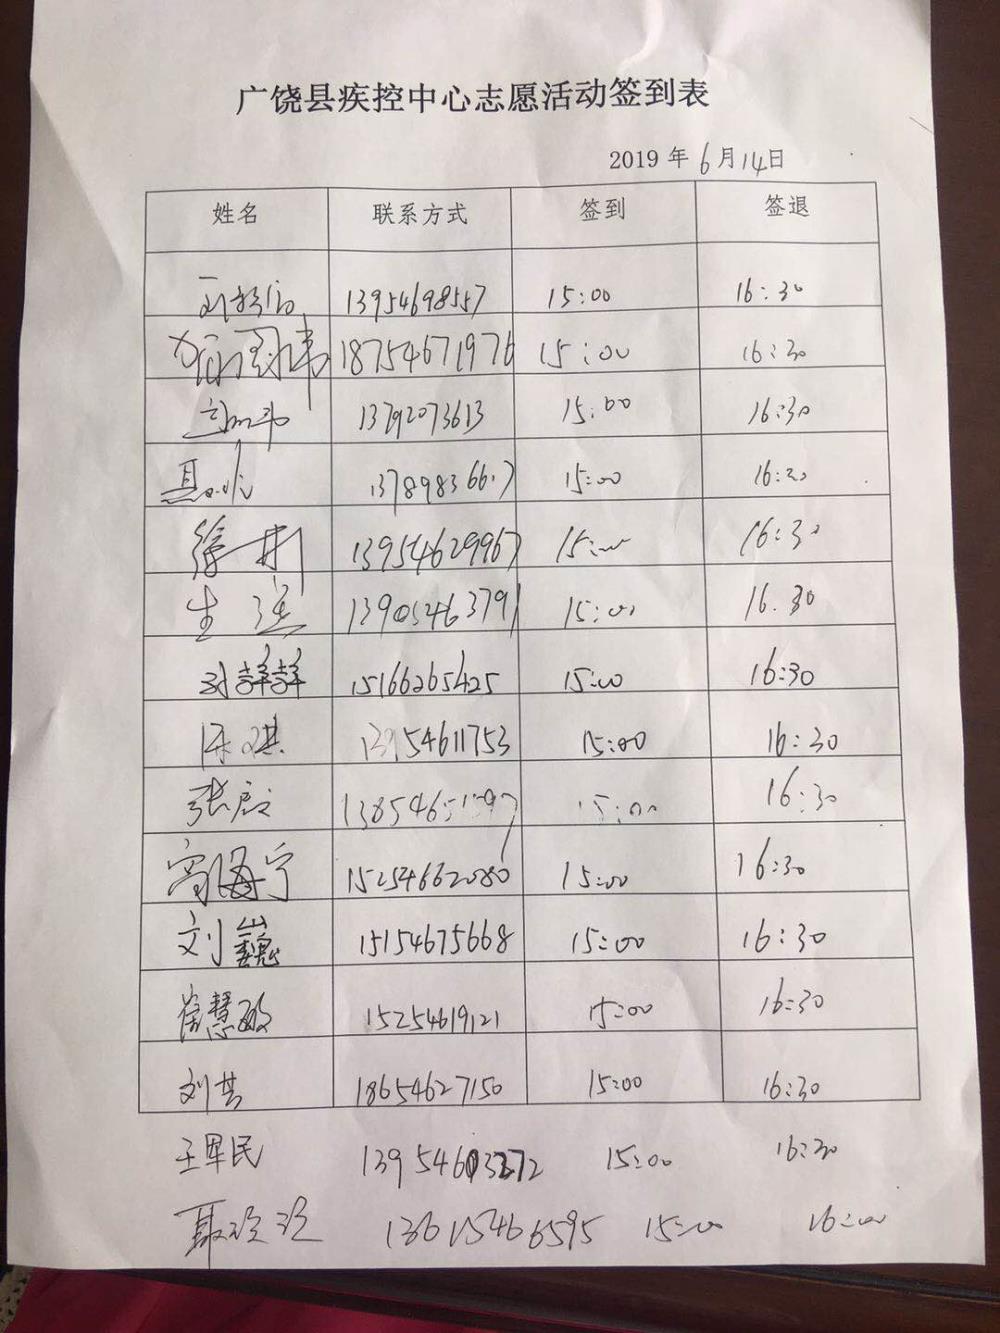 广饶县疾控中心志愿活动签到表
2019 年 6 月 14 日
姓名 联系方式 签到 签退
13954698557 15:00 16:30
18754671976 15:00 16:30
13792073613 15:00 16:30
13789836617 15:00 16:30
徐彬 13954629967 15:00 16:30
生 13905463791 15:00 16.30
刘祥祥 15166265425 15:00 16:30
陈琪 13954611753 15:00 16:30
张 15:00 16:30
高海宁 15254662080 15:00 16:30
刘巍 15154675668 15:00 16:30
崔慧敏 15254619121 15:00 16:30
刘芸 18654627150 15:00 16:30
王军民 15:00 16:30
聂玲玲 13615466595 15:00 16:00